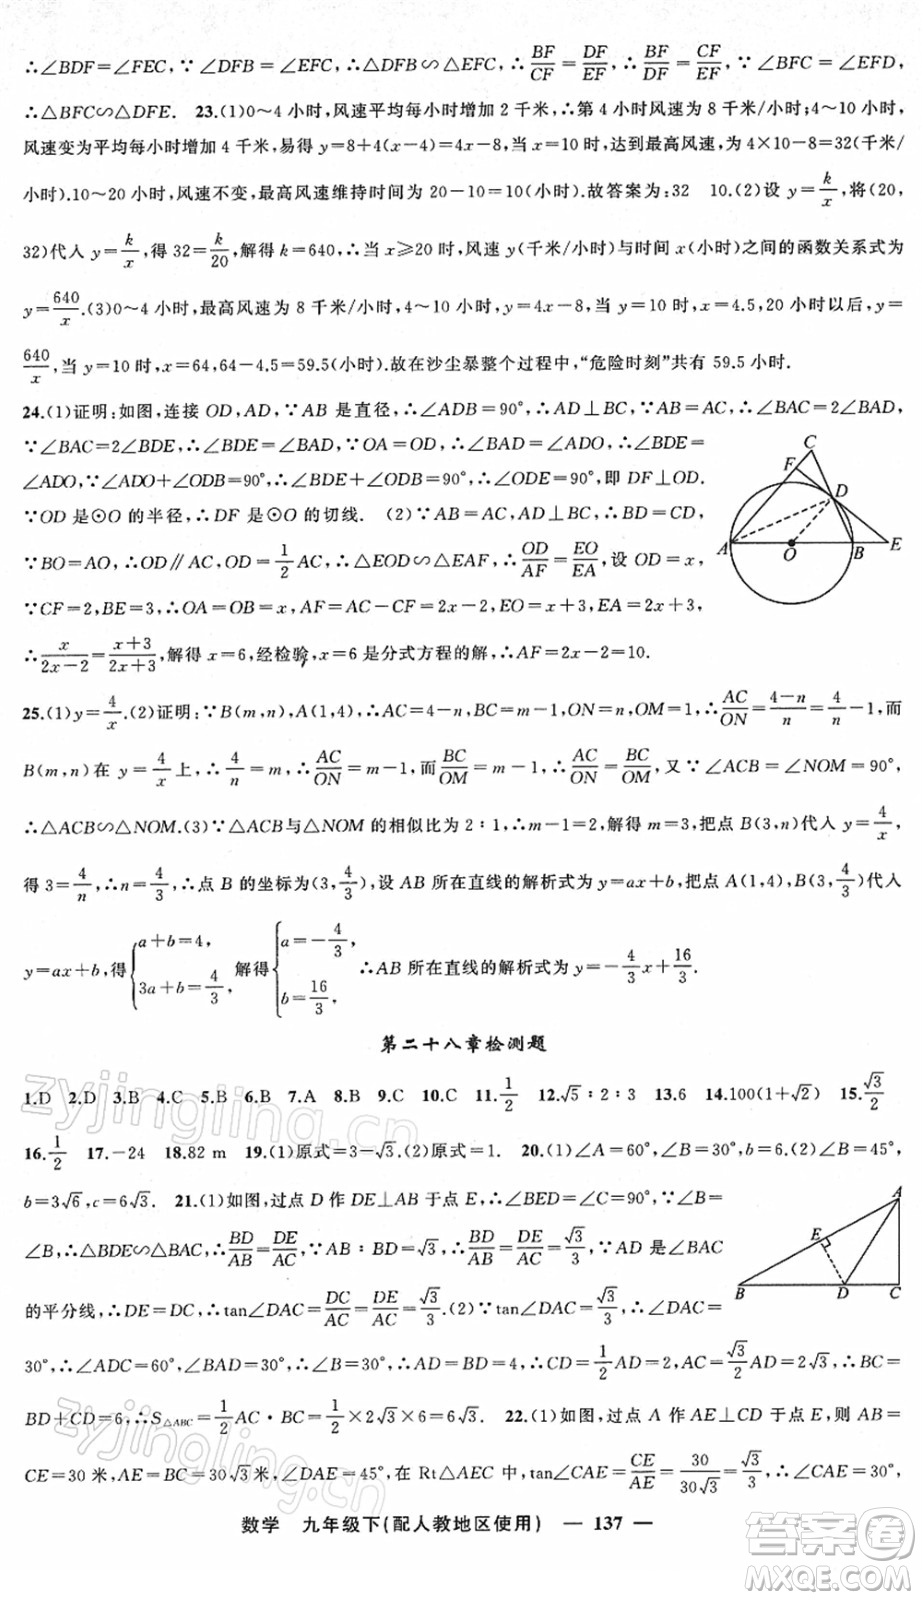 ∴∠BDF=∠FEC,∵∠DFB=∠EFC,∴△DFB∽△EFC,∴BF/CF=DF/EF,∴BF/DF=CF/EF,∵∠BFC=∠EFD,
∴△BFC∽△DFE. 23.(1)0～4小时,风速平均每小时增加2千米,∴第4小时风速为8千米/小时;4～10小时,
风速变为平均每小时增加4千米,易得y=8+4(x-4)=4x-8,当x=10时,达到最高风速,为4×10-8=32(千米/
小时).10～20小时,风速不变,最高风速维持时间为20-10=10(小时).故答案为:32 10.(2)设y=k/x,将(20,
32)代入y=k/x,得32=k/20,解得k=640,∴当x≥20时,风速y(千米/小时)与时间x(小时)之间的函数关系式为
y=640/x.(3)0～4小时,最高风速为8千米/小时,4～10小时,y=4x-8,当y=10时,x=4.5,20小时以后,y=
640/x,当y=10时,x=64,64-4.5=59.5(小时).故在沙尘暴整个过程中,“危险时刻”共有59.5小时.
24.(1)证明:如图,连接OD,AD,∵AB是直径,∴∠ADB=90°,∴AD⊥BC,∵AB=AC,∴∠BAC=2∠BAD,
∵∠BAC=2∠BDE,∴∠BDE=∠BAD,∵OA=OD,∴∠BAD=∠ADO,∴∠BDE=
∠ADO,∵∠ADO+∠ODB=90°,∴∠BDE+∠ODB=90°,∴∠ODE=90°,即DF⊥OD.
∵OD是⊙O的半径,∴DF是⊙O的切线. (2)∵AB=AC,AD⊥BC,∴BD=CD,
∵BO=AO,∴OD∥AC,OD=1/2AC,∴△EOD∽△EAF,∴OD/AF=EO/EA,设OD=x,
∵CF=2,BE=3,∴OA=OB=x,AF=AC-CF=2x-2,EO=x+3,EA=2x+3,
∴x/(2x-2)=(x+3)/(2x+3),解得x=6,经检验,x=6是分式方程的解,∴AF=2x-2=10.
C
F
D
A
O
B
E
25.(1)y=4/x.(2)证明:∵B(m,n),A(1,4),∴AC=4-n,BC=m-1,ON=n,OM=1,∴AC/ON=(4-n)/n=4/n-1,而
B(m,n)在y=4/x上,∴4/n=m,∴AC/ON=m-1,而BC/OM=m-1,∴AC/ON=BC/OM,又∵∠ACB=∠NOM=90°,
∴△ACB∽△NOM.(3)∵△ACB与△NOM的相似比为2∶1,∴m-1=2,解得m=3,把点B(3,n)代入y=4/x,
得3=4/n,∴n=4/3,∴点B的坐标为(3,4/3),设AB所在直线的解析式为y=ax+b,把点A(1,4),B(3,4/3)代入
y=ax+b,得{a+b=4, 3a+b=4/3, 解得{a=-4/3, b=16/3, ∴AB所在直线的解析式为y=-4/3x+16/3.
第二十八章检测题
1.D 2.D 3.B 4.C 5.C 6.B 7.A 8.B 9.C 10.C 11.1/2 12.√5∶2∶3 13.6 14.100(1+√2) 15.√3/2
16.1/2 17.-24 18.82 m 19.(1)原式=3-√3.(2)原式=1. 20.(1)∠A=60°,∠B=30°,b=6.(2)∠B=45°,
b=3√6,c=6√3. 21.(1)如图,过点D作DE⊥AB于点E,∴∠BED=∠C=90°,∵∠B=
∠B,∴△BDE∽△BAC,∴BD/AB=DE/AC,∵AB∶BD=√3,∴BD/AB=DE/AC=√3/3,∵AD是∠BAC
的平分线,∴DE=DC,∴tan∠DAC=DC/AC=DE/AC=√3/3.(2)∵tan∠DAC=√3/3,∴∠DAC=
A
E
B
D
C
30°,∴∠ADC=60°,∠BAD=30°,∴∠B=∠BAD=30°,∴AD=BD=4,∴CD=1/2AD=2,AC=√3/2AD=2√3,∴BC=
BD+CD=6,∴S△ABC=1/2AC·BC=1/2×2√3×6=6√3. 22.(1)如图,过点A作AE⊥CD于点E,则AB=
CE=30米,AE=BC=30√3米,∠DAE=45°,在Rt△AEC中,tan∠CAE=CE/AE=30/30√3=√3/3,∴∠CAE=30°,
数学 九年级下(配人教地区使用) — 137 —
zyjingling.cn
zyjingling.cn
答案圈
MXQE.COM